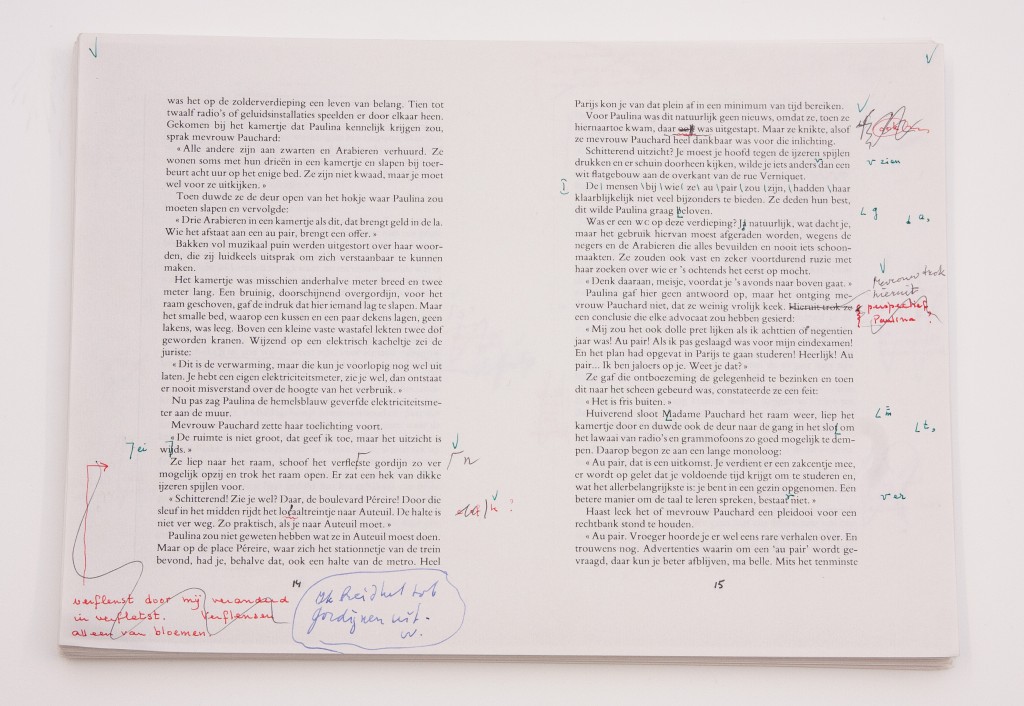 was het op de zolderverdieping een leven van belang. Tien tot
twaalf radio's of geluidsinstallaties speelden er door elkaar heen.
Gekomen bij het kamertje dat Paulina kennelijk krijgen zou,
sprak mevrouw Pauchard:
« Alle andere zijn aan zwarten en Arabieren verhuurd. Ze
wonen soms met hun drieën in een kamertje en slapen bij toer-
beurt acht uur op het enige bed. Ze zijn niet kwaad, maar je moet
wel voor ze uitkijken. »
Toen duwde ze de deur open van het hokje waar Paulina zou
moeten slapen en vervolgde:
« Drie Arabieren in een kamertje als dit, dat brengt geld in de la.
Wie het afstaat aan een au pair, brengt een offer. »
Bakken vol muzikaal puin werden uitgestort over haar woor-
den, die zij luidkeels uitsprak om zich verstaanbaar te kunnen
maken.
Het kamertje was misschien anderhalve meter breed en twee
meter lang. Een bruinig, doorschijnend overgordijn, voor het
raam geschoven, gaf de indruk dat hier iemand lag te slapen. Maar
het smalle bed, waarop een kussen en een paar dekens lagen, geen
lakens, was leeg. Boven een kleine vaste wastafel lekten twee dof
geworden kranen. Wijzend op een elektrisch kacheltje zei de
juriste:
« Dit is de verwarming, maar die kun je voorlopig nog wel uit
laten. Je hebt een eigen elektriciteitsmeter, zie je wel, dan ontstaat
er nooit misverstand over de hoogte van het verbruik. »
Nu pas zag Paulina de hemelsblauw geverfde elektriciteitsme-
ter aan de muur.
Mevrouw Pauchard zette haar toelichting voort.
« De ruimte is niet groot, dat geef ik toe, maar het uitzicht is
wijds. »
ei
Ze liep naar het raam, schoof het verfletste gordijn zo ver
n
mogelijk opzij en trok het raam open. Er zat een hek van dikke
ijzeren spijlen voor.
« Schitterend! Zie je wel? Daar, de boulevard Péreire! Door die
sleuf in het midden rijdt het locaaltreintje naar Auteuil. De halte is
k ?
niet ver weg. Zo praktisch, als je naar Auteuil moet. »
Paulina zou niet geweten hebben wat ze in Auteuil moest doen.
Maar op de place Péreire, waar zich het stationnetje van de trein
bevond, had je, behalve dat, ook een halte van de metro. Heel
14
verflenst door mij veranderd
in verfletst. Verflensen
alleen van bloemen
gordijnen uit.
Parijs kon je van dat plein af in een minimum van tijd bereiken.
Voor Paulina was dit natuurlijk geen nieuws, omdat ze, toen ze
hiernaartoe kwam, daar ook was uitgestapt. Maar ze knikte, alsof
ze mevrouw Pauchard heel dankbaar was voor die inlichting.
Schitterend uitzicht? Je moest je hoofd tegen de ijzeren spijlen
drukken en er schuin doorheen kijken, wilde je iets anders dan een
zien
wit flatgebouw aan de overkant van de rue Verniquet.
De mensen bij wie ze au pair zou zijn, hadden haar
klaarblijkelijk niet veel bijzonders te bieden. Ze deden hun best,
dit wilde Paulina graag geloven.
g
Was er een wc op deze verdieping? Ja natuurlijk, wat dacht je,
a,
maar het gebruik hiervan moest afgeraden worden, wegens de
negers en de Arabieren die alles bevuilden en nooit iets schoon-
maakten. Ze zouden ook vast en zeker voortdurend ruzie met
haar zoeken over wie er 's ochtends het eerst op mocht.
« Denk daaraan, meisje, voordat je 's avonds naar boven gaat. »
Paulina gaf hier geen antwoord op, maar het ontging me-
vrouw Pauchard niet, dat ze weinig vrolijk keek. Hieruit trok ze
Mevrouw trok
hieruit
perspectief
Paulina ?
een conclusie die elke advocaat zou hebben gesierd:
« Mij zou het ook dolle pret lijken als ik achttien of negentien
jaar was! Au pair! Als ik pas geslaagd was voor mijn eindexamen!
En het plan had opgevat in Parijs te gaan studeren! Heerlijk! Au
pair... Ik ben jaloers op je. Weet je dat? »
Ze gaf die ontboezeming de gelegenheid te bezinken en toen
dit naar het scheen gebeurd was, constateerde ze een feit:
« Het is fris buiten. »
Huiverend sloot Madame Pauchard het raam weer, liep het
m
kamertje door en duwde ook de deur naar de gang in het slot om
t,
het lawaai van radio's en grammofoons zo goed mogelijk te dem-
pen. Daarop begon ze aan een lange monoloog:
« Au pair, dat is een uitkomst. Je verdient er een zakcentje mee,
er wordt op gelet dat je voldoende tijd krijgt om te studeren en,
wat het allerbelangrijkste is: je bent in een gezin opgenomen. Een
betere manier om de taal te leren spreken, bestaat niet. »
er
Haast leek het of mevrouw Pauchard een pleidooi voor een
rechtbank stond te houden.
« Au pair. Vroeger hoorde je er wel eens rare verhalen over. En
trouwens nog. Advertenties waarin om een 'au pair' wordt ge-
vraagd, daar kun je beter afblijven, ma belle. Mits het tenminste
15